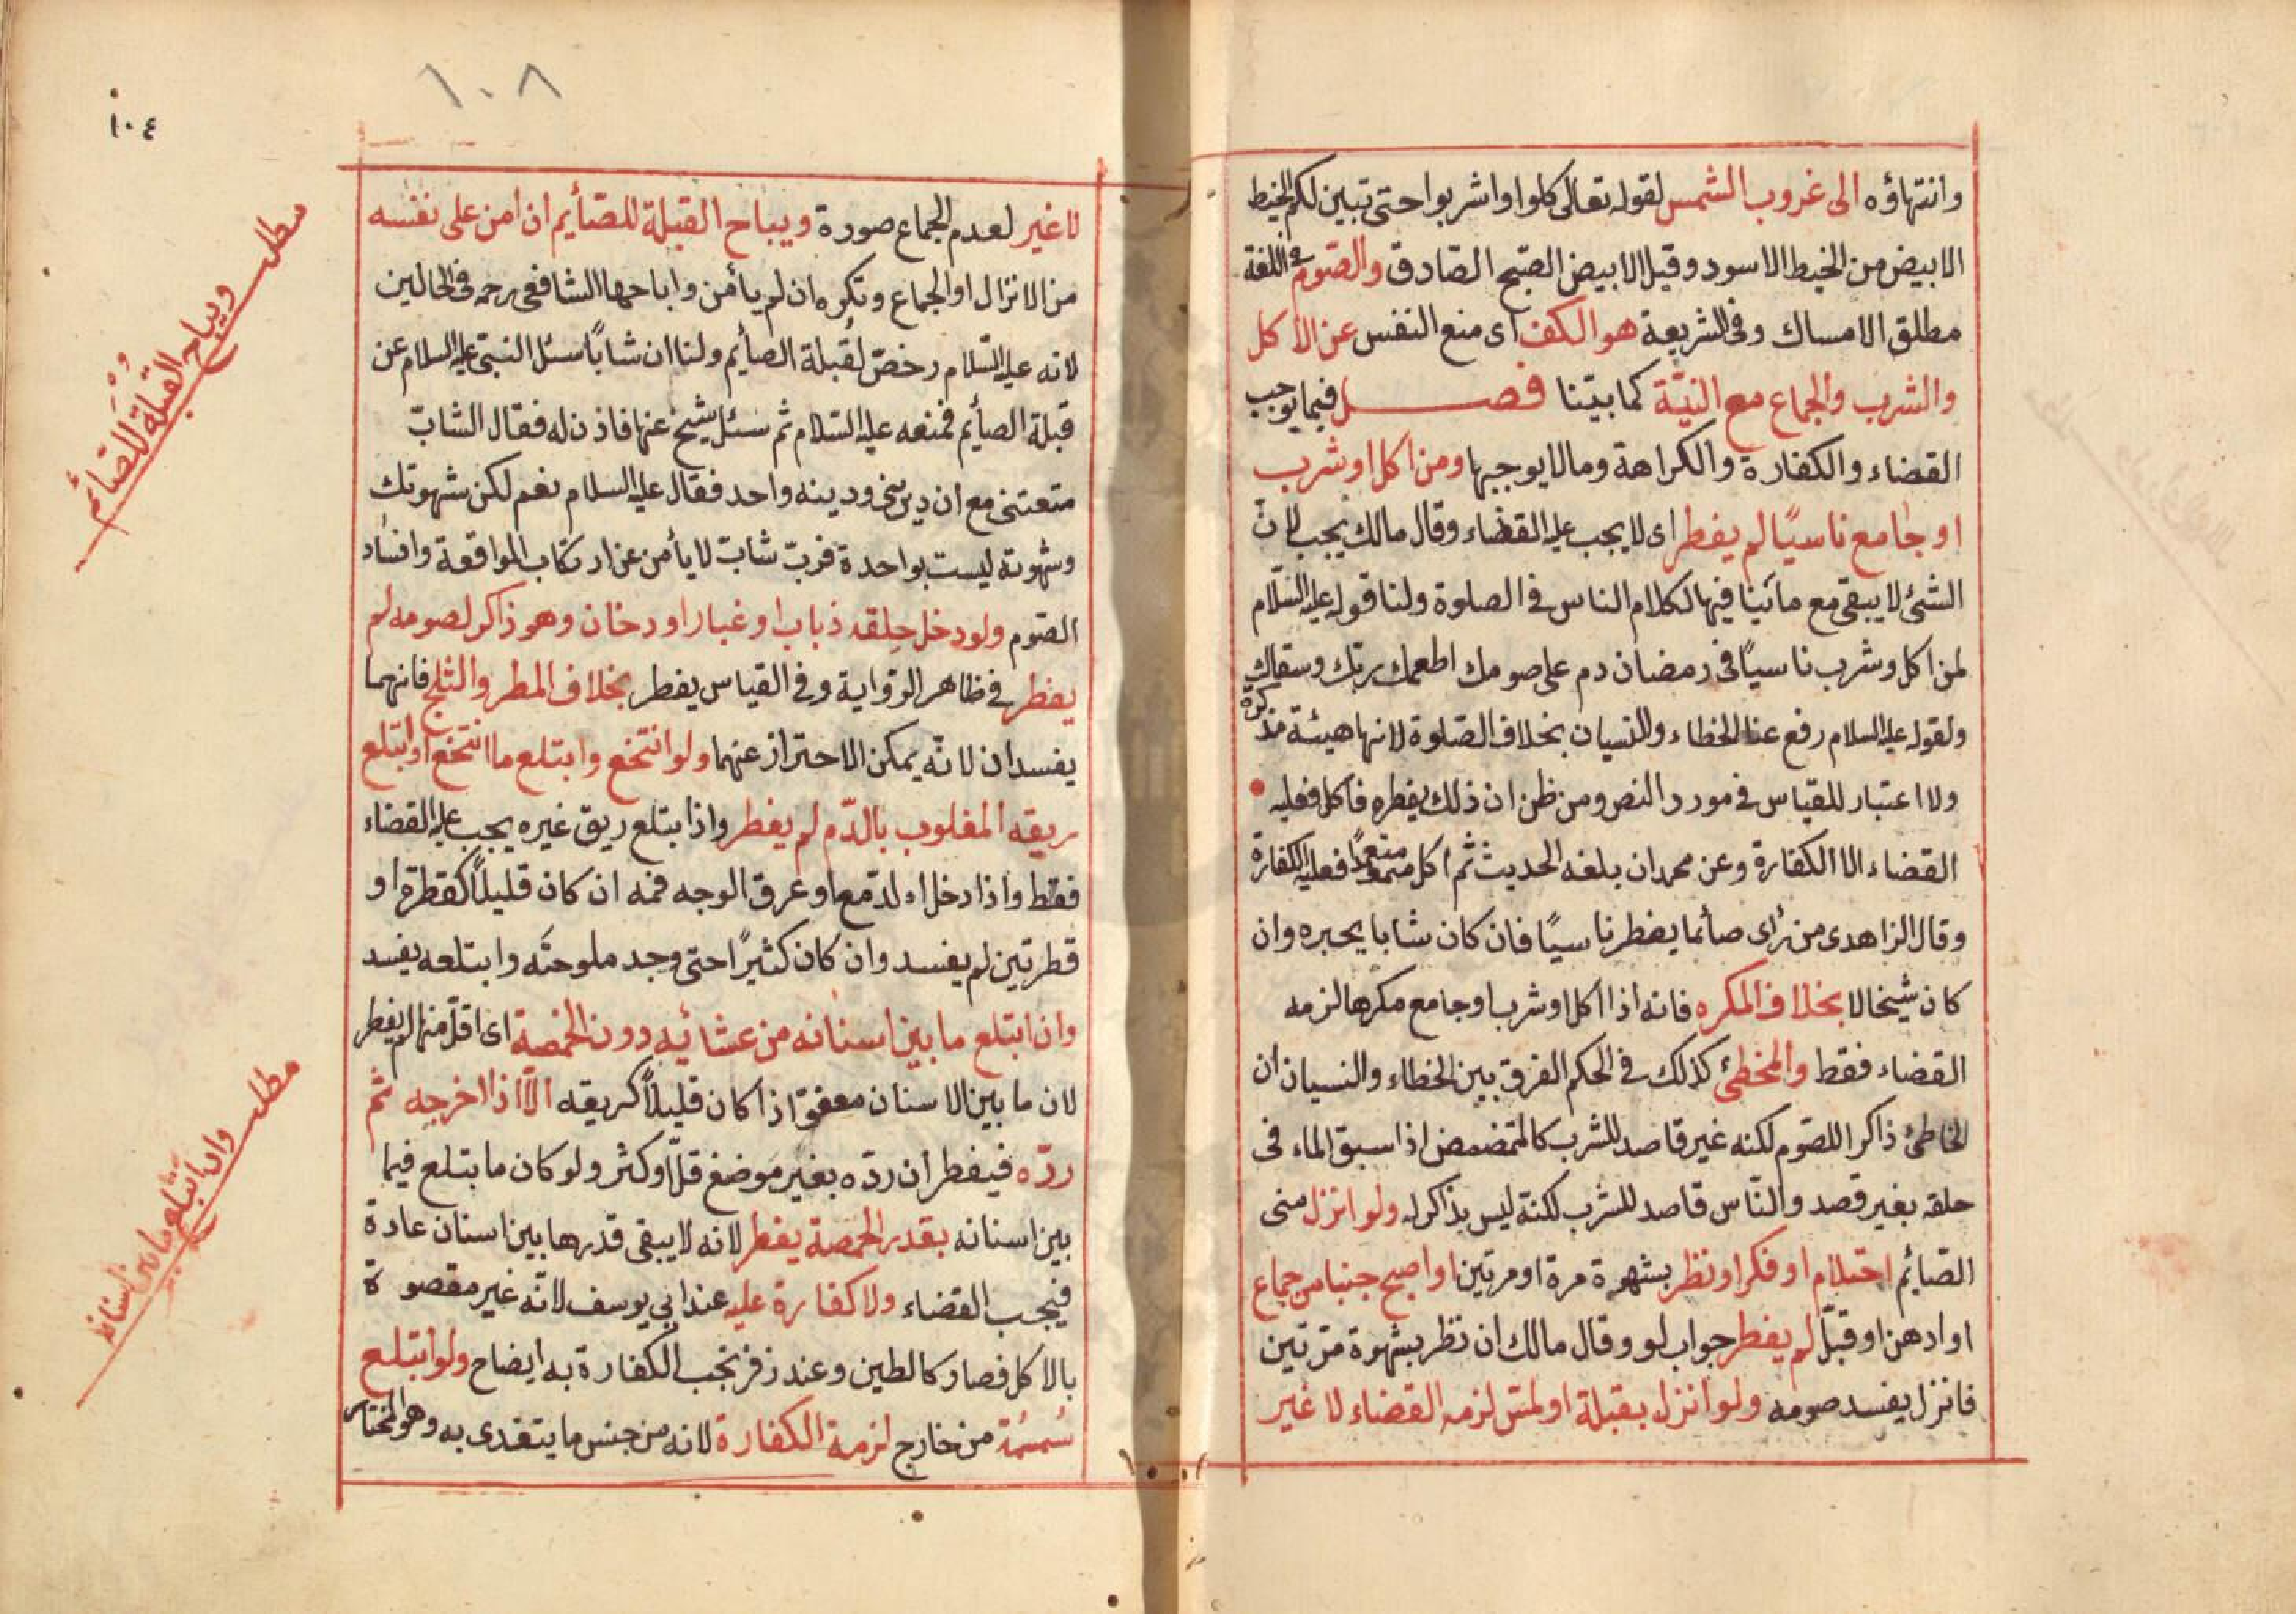 وانتهاؤه الى غروب الشمس لقوله تعالى كلوا واشربوا حتى تبين لكم الخيط
الابيض من الخيط الاسود وقيل الابيض الصبح الصّادق والصّوم فى اللغة
مطلق الامساك وفى الشريعة هو الكف اى منع النفس عن الأكل
والشرب والجماع مع النيّة كما بيّنا فصل فيما يوجب
القضاء والكفارة والكراهة وما لا يوجبها ومن اكل او شرب
او جامع ناسيًا لم يفطر اى لا يجب عليه القضاء وقال مالك يجب لانّ
الشئ لا يبقى مع ما ينافيها لكلام الناس فى الصلوة ولنا قوله عليه السّلام
لمن اكل وشرب ناسيًا فى رمضان دم على صومك اطعمك ربّك وسقاك
ولقوله عليه السلام رفع عنا الخطاء والنسيان بخلاف الصّلوة لانها هيئة مذكرة
ولا اعتبار للقياس فى مورد النص ومن ظن ان ذلك يفطره فاكل فعليه
القضاء الا الكفارة وعن محمد ان بلغه الحديث ثم اكل متعمدًا فعليه الكفارة
وقال الزاهدى من رأى صائما يفطر ناسيًا فان كان شابا يخبره وان
كان شيخا لا بخلاف المكره فانه اذا اكل او شرب او جامع مكرها لزمه
القضاء فقط والمخطئ كذلك فى الحكم الفرق بين الخطاء والنسيان ان
الخاطئ ذاكرا للصّوم لكنه غير قاصد للشرب كالمتمضمض اذا سبق الماء فى
حلقه بغير قصد والنّاس قاصد للشرب لكنة ليس بذاكر له ولو انزل منى
الصّائم احتلام او فكر او نظر بشهوة مرة او مرتين او اصبح جنبا من جماع
او ادهن او قبّل لم يفطر جواب لو وقال مالك ان نظر بشهوة مرّتين
فانزل يفسد صومه ولو انزل بقبلة او لمس لزمه القضاء لا غير
١٠٨
١٠٤
لا غير لعدم الجماع صورة ويباح القبلة للصّأيم ان امن على نفسه
من الانزال او الجماع وتكره ان لم يأمن واباحها الشافعى رحمه فى الحالين
لانه عليه السّلام رخصّ لقُبلة الصأيم ولنا ان شابًا سئل النبىّ عليه السلام عن
قبلة الصأيم فمنعه عليه السّلام ثم سئل شيخ عنها فاذن له فقال الشابّ
متعتنى مع ان دينى ودينه واحد فقال عليه السلام نعم لكن شهوتك
وشهوته ليست بواحدة فربّ شابّ لا يأمن عن ارتكاب المواقعة وافساد
الصّوم ولو دخل حلقه ذباب او غبار او دخان وهو ذاكر لصومه لم
يفطر فى ظاهر الرّواية وفى القياس يفطر بخلاف المطر والثلج فانهما
يفسدان لانّه يمكن الاحتراز عنهما ولو انتخع وابتلع ما انتخع او ابتلع
ريقه المغلوب بالدّم لم يفطر واذا ابتلع ريق غيره يجب عليه القضاء
فقط واذا دخل الدّمع او عرق الوجه فمه ان كان قليلاً كقطرة او
قطرتين لم يفسد وان كان كثيرًا حتى وجد ملوحتَه وابتلعه يفسد
وان ابتلع ما بين اسنانه من عشائيه دون الحمّصة اى اقلّ منها لم يفطر
لان ما بين الاسنان معفوّ اذا كان قليلاً كريقه الّا اذا اخرجه ثم
ردّه فيفطر ان ردّه بغير موضغ قلّ او كثر ولو كان ما بتلع فيما
بين اسنانه بقدر الحمّصة يفطر لانه لا يبقى قدرها بين اسنان عادة
فيجب القضاء ولا كفارة عليه عند ابى يوسف لانّه غير مقصوة
بالاكل فصار كالطين وعند زفر تجب الكفارة به ايضاح ولو ابتلع
سُمسُمة من خارج لزمة الكفارة لانه من جنس ما يتغدى به وهو المختار
مطلب
ويباح القبلة للصّائم
مطلب
وان ابتلع ما بين اسنانه